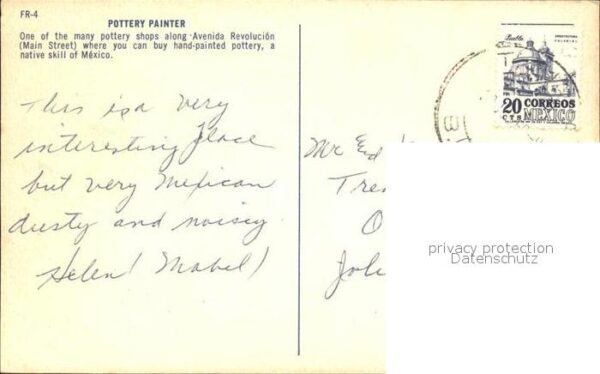 FR-4
POTTERY PAINTER
One of the many pottery shops along Avenida Revolución
(Main Street) where you can buy hand-painted pottery, a
native skill of México.
This is a very
interesting place
but very Mexican
dusty and noisy
Helen! Mabel!
Puebla
ARQUITECTURA
COLONIAL
20
CTS
CORREOS
MEXICO
Mr Ed
Tre
O
Joh
privacy protection
Datenschutz